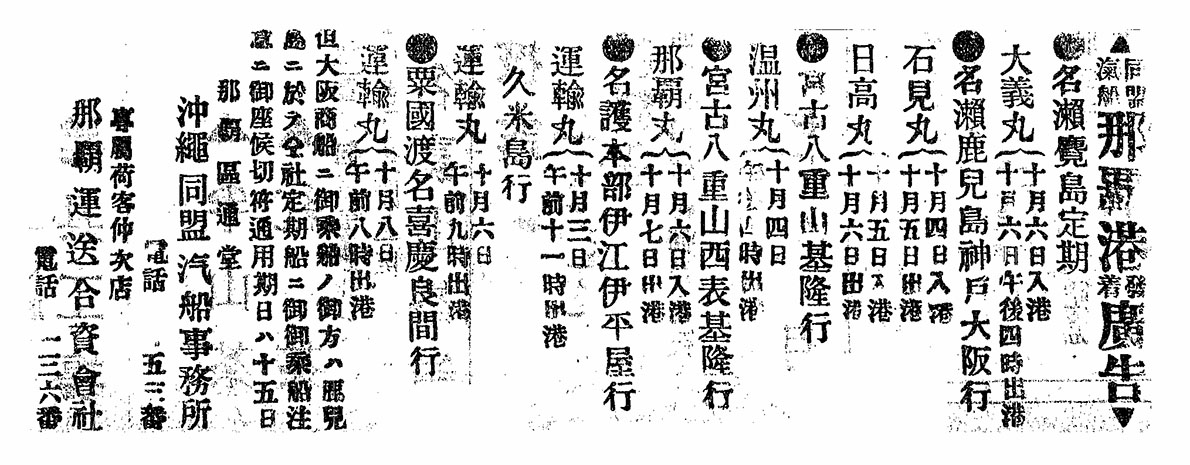 ▲同盟汽船那覇港發着廣告▼
●名瀬覽島定期
大義丸
十月六日入港
十月六日午後四時出港
●名瀬鹿兒島神戸大阪行
石見丸
十月四日入港
十月五日出港
日高丸
十月五日入港
十月六日出港
●宮古八重山基隆行
温州丸
十月四日
時出港
●宮古八重山西表基隆行
那覇丸
十月六日入港
十月七日出港
●名護本部伊江伊平屋行
運輸丸
十月三日
午前十一時出港
久米島行
運輸丸
十月六日
午前九時出港
●粟國渡名喜慶良間行
運輸丸
十月八日
午前八時出港
但大阪商船ニ御乘船ノ御方ハ鹿兒
島ニ於テ全社定期船ニ御乘船注
意ニ御座候切符通用期日ハ十五日
那覇區通堂
沖繩同盟汽船事務所
電話 五三番
專屬荷客仲次店
那覇運送合資會社
電話 二三六番